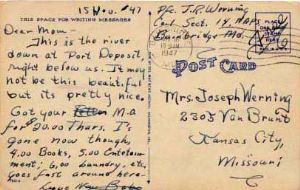 15 Nov. '47
THIS SPACE FOR WRITING MESSAGES
Dear Mom—
This is the river
down at Port Deposit,
right below us. It may
not be this beautiful
but its pretty nice.
Got your M.O
for $20.00 Thurs. I's
gone now though,
4.00 Books, 5.00 Entertain-
ment; 6.00 Laundry, etc.
Goes fast around here.
Love
Pfc. J.R. Werning
Bainbridge Md.
1947
POST CARD
Mrs. Joseph Werning
2303 Van Brunt
Kansas City,
Missouri